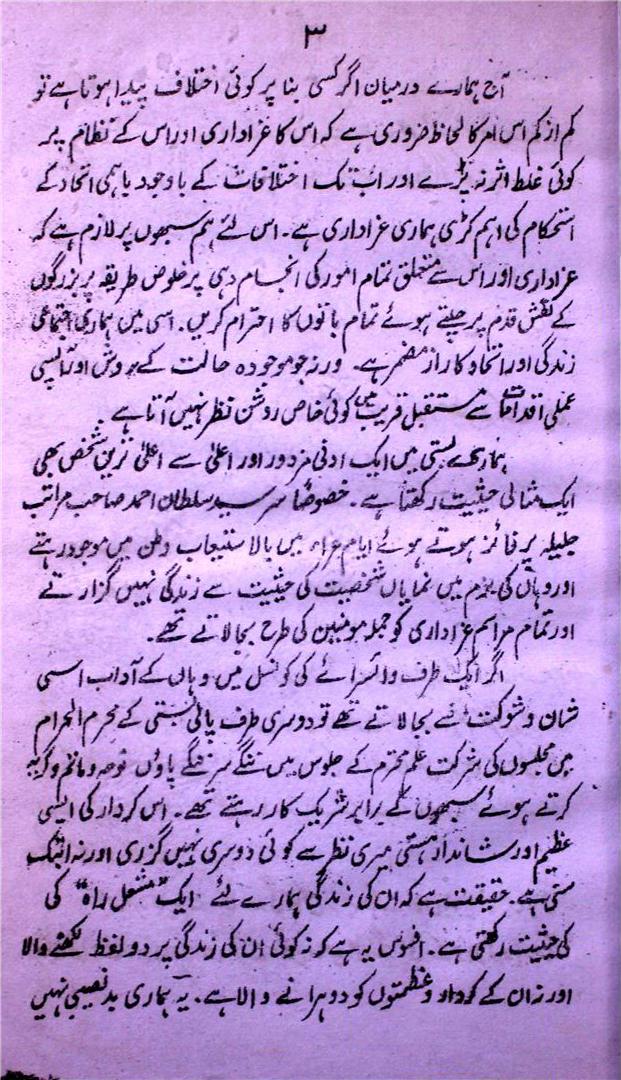 ۳
آج ہمارے درمیان اگر کسی بنا پر کوئی اختلاف پیدا ہوتا ہے تو
کم از کم اس امر کا لحاظ ضروری ہے کہ اس کا عزاداری اور اس کے نظام پر
کوئی غلط اثر نہ پڑے اور اب تک اختلافات کے باوجود باہمی اتحاد کے
استحکام کی اہم کڑی ہماری عزاداری ہے۔ اس لئے ہم سبھوں پر لازم ہے کہ
عزاداری اور اس سے متعلق تمام امور کی انجام دہی پرخلوص طریقہ پر بزرگوں
کے نقش قدم پر چلتے ہوئے تمام باتوں کا احترام کریں۔ اسی میں ہماری اجتماعی
زندگی اور اتحاد کا راز مضمر ہے۔ ورنہ جو موجودہ حالت کے روش اور آپسی
عملی اقدامات سے مستقبل قریب میں کوئی خاص روشن نظر نہیں آتا ہے۔
ہمارے بستی میں ایک ادنیٰ مزدور اور اعلیٰ سے اعلیٰ ترین شخص بھی
ایک مثالی حیثیت رکھتا ہے۔ خصوصاً سر سید سلطان احمد صاحب مراتب
جلیلہ پر فائز ہوتے ہوئے ایام عزاء میں بالاستیعاب وطن میں موجود رہتے
اور وہاں کی بزم میں نمایاں شخصیت کی حیثیت سے زندگی نہیں گزارتے
اور تمام مراسم عزاداری کو جملہ مومنین کی طرح بجا لاتے تھے۔
اگر ایک طرف وائسرائے کی کونسل میں وہاں کے آداب اسی
شان و شوکت سے بجا لاتے تھے تو دوسری طرف پالی بستی کے محرم الحرام
میں مجلسوں کی شرکت علم محترم کے جلوس میں ننگے سر ننگے پاؤں نوحہ و ماتم و گریہ
کرتے ہوئے سبھوں کے برابر شریک کار رہتے تھے۔ اس کردار کی ایسی
عظیم اور شاندار ہستی میری نظر سے کوئی دوسری نہیں گزری اور نہ ابتک
سنی ہے۔ حقیقت ہے کہ ان کی زندگی ہمارے لئے ایک "مشعل راہ" کی
کی حیثیت رکھتی ہے۔ افسوس یہ ہے کہ نہ کوئی ان کی زندگی پر دو لفظ لکھنے والا
اور نہ ان کے کردار و عظمتوں کو دوہرانے والا ہے۔ یہ ہماری بدنصیبی نہیں